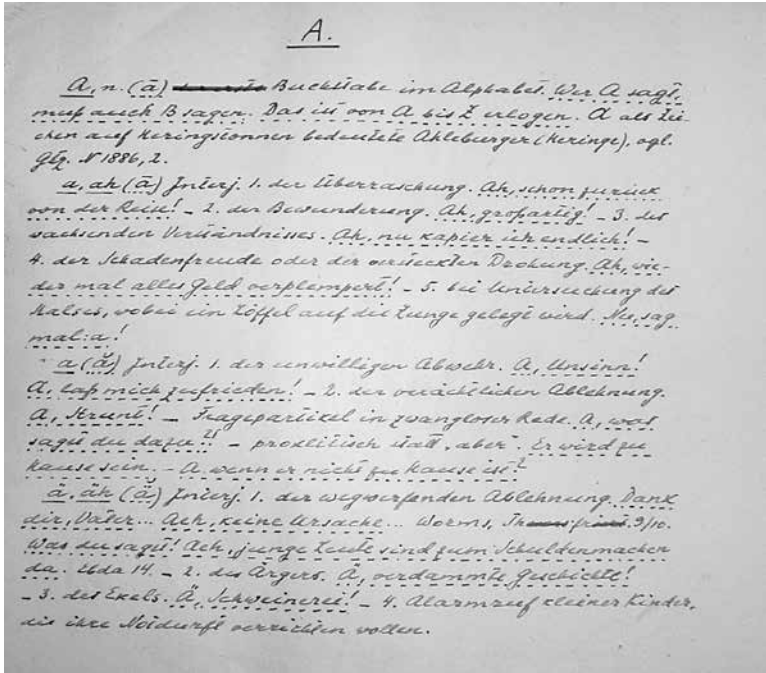 A.
A, n. (ā) Buchstabe im Alphabet. Wer A sagt,
muß auch B sagen. Das ist von A bis Z erlogen. A als Zei-
chen auf Heringstonnen bedeutete Ahleburger (Heringe), vgl.
Gtg. N 1886, 2.
a, ah (ā) Interj. 1. der Überraschung. Ah, schon zurück
von der Reise! – 2. der Bewunderung. Ah, großartig! – 3. des
wachsenden Verständnisses. Ah, nu kapier ich endlich! –
4. der Schadenfreude oder der versteckten Drohung. Ah, wie-
der mal alles Geld verplempert! – 5. bei Untersuchung des
Halses, wobei ein Löffel auf die Zunge gelegt wird. Nu, sag
mal: a!
a (ă) Interj. 1. der unwilligen Abwehr. A, Unsinn!
A, laß mich zufrieden! – 2. der verächtlichen Ablehnung.
A, Strunt! – Fragepartikel in zwangloser Rede. A, was
sagst du dazu?! – proklitisch statt „aber“. Er wird zu
Hause sein. – A wenn er nicht zu Hause ist?
ä, äh (ä) Interj. 1. der wegwerfenden Ablehnung. Dank
dir, Vater... Aeh, keine Ursache... Worms, 9/10.
Was du sagst! Aeh, junge Leute sind zum Schuldenmachen
da. Ebda 14. – 2. des Ärgers. Ä, verdammte Geschichte!
– 3. des Ekels. Ä, Schweinerei! – 4. Alarmruf kleiner Kinder,
die ihre Notdurft verrichten wollen.